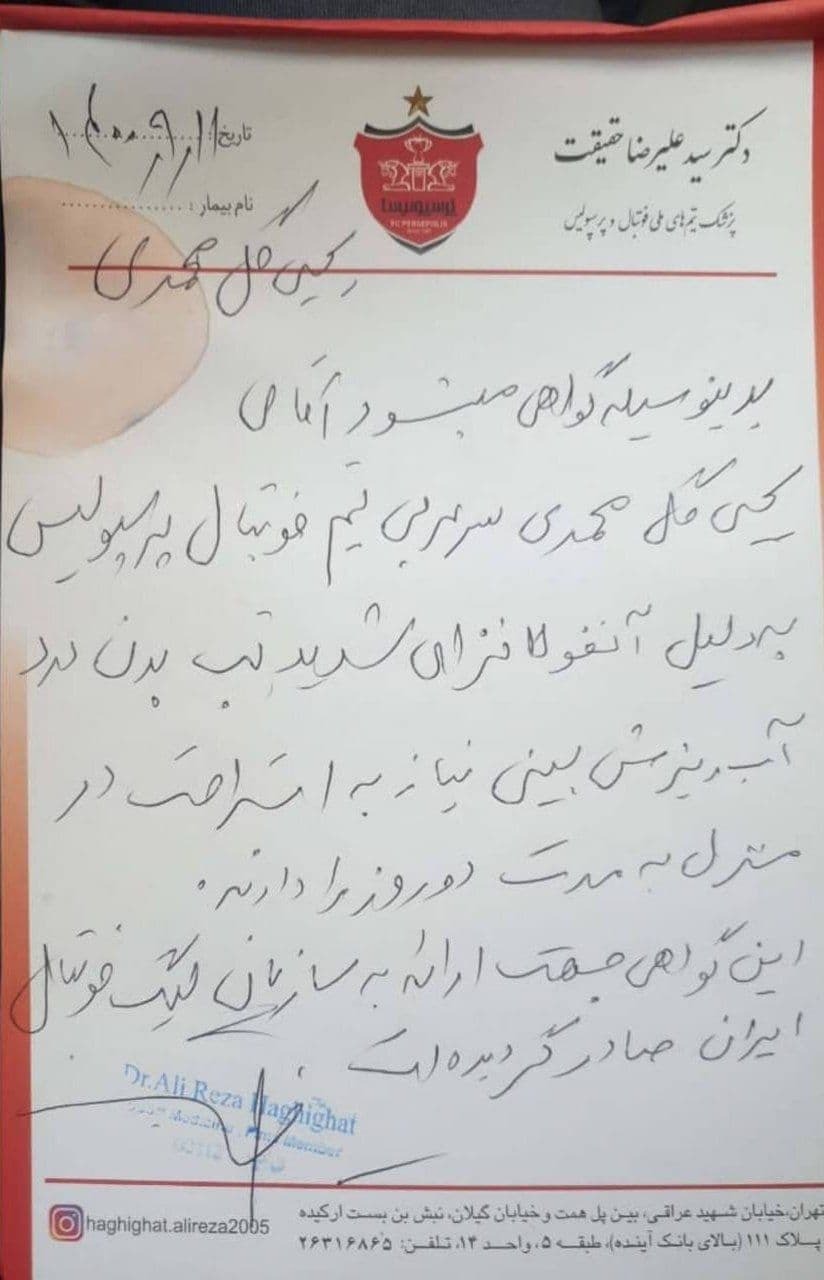 دکتر سید علیرضا حقیقت
پزشک تیم‌های ملی فوتبال و پرسپولیس
پرسپولیس
FC PERSEPOLIS
تاریخ: ۱۴۰۰/۹/۱۱
نام بیمار:
یحیی گل محمدی
بدینوسیله گواهی میشود آقای
یحیی گل محمدی سرمربی تیم فوتبال پرسپولیس
به دلیل آنفولانزای شدید تب بدن درد
آب ریزش بینی نیاز به استراحت در
منزل به مدت دو روز را دارند.
این گواهی جهت ارائه به سازمان لیگ فوتبال
ایران صادر گردیده است.
Dr.Ali Reza Haghighat
Medicine Member
تهران،خیابان شهید عراقی، بین پل همت و خیابان گیلان، نبش بن بست ارکیده
پلاک ۱۱۱ (بالای بانک آینده)، طبقه ۵، واحد ۱۴، تلفن: ۲۶۳۱۶۸۶۵
haghighat.alireza2005